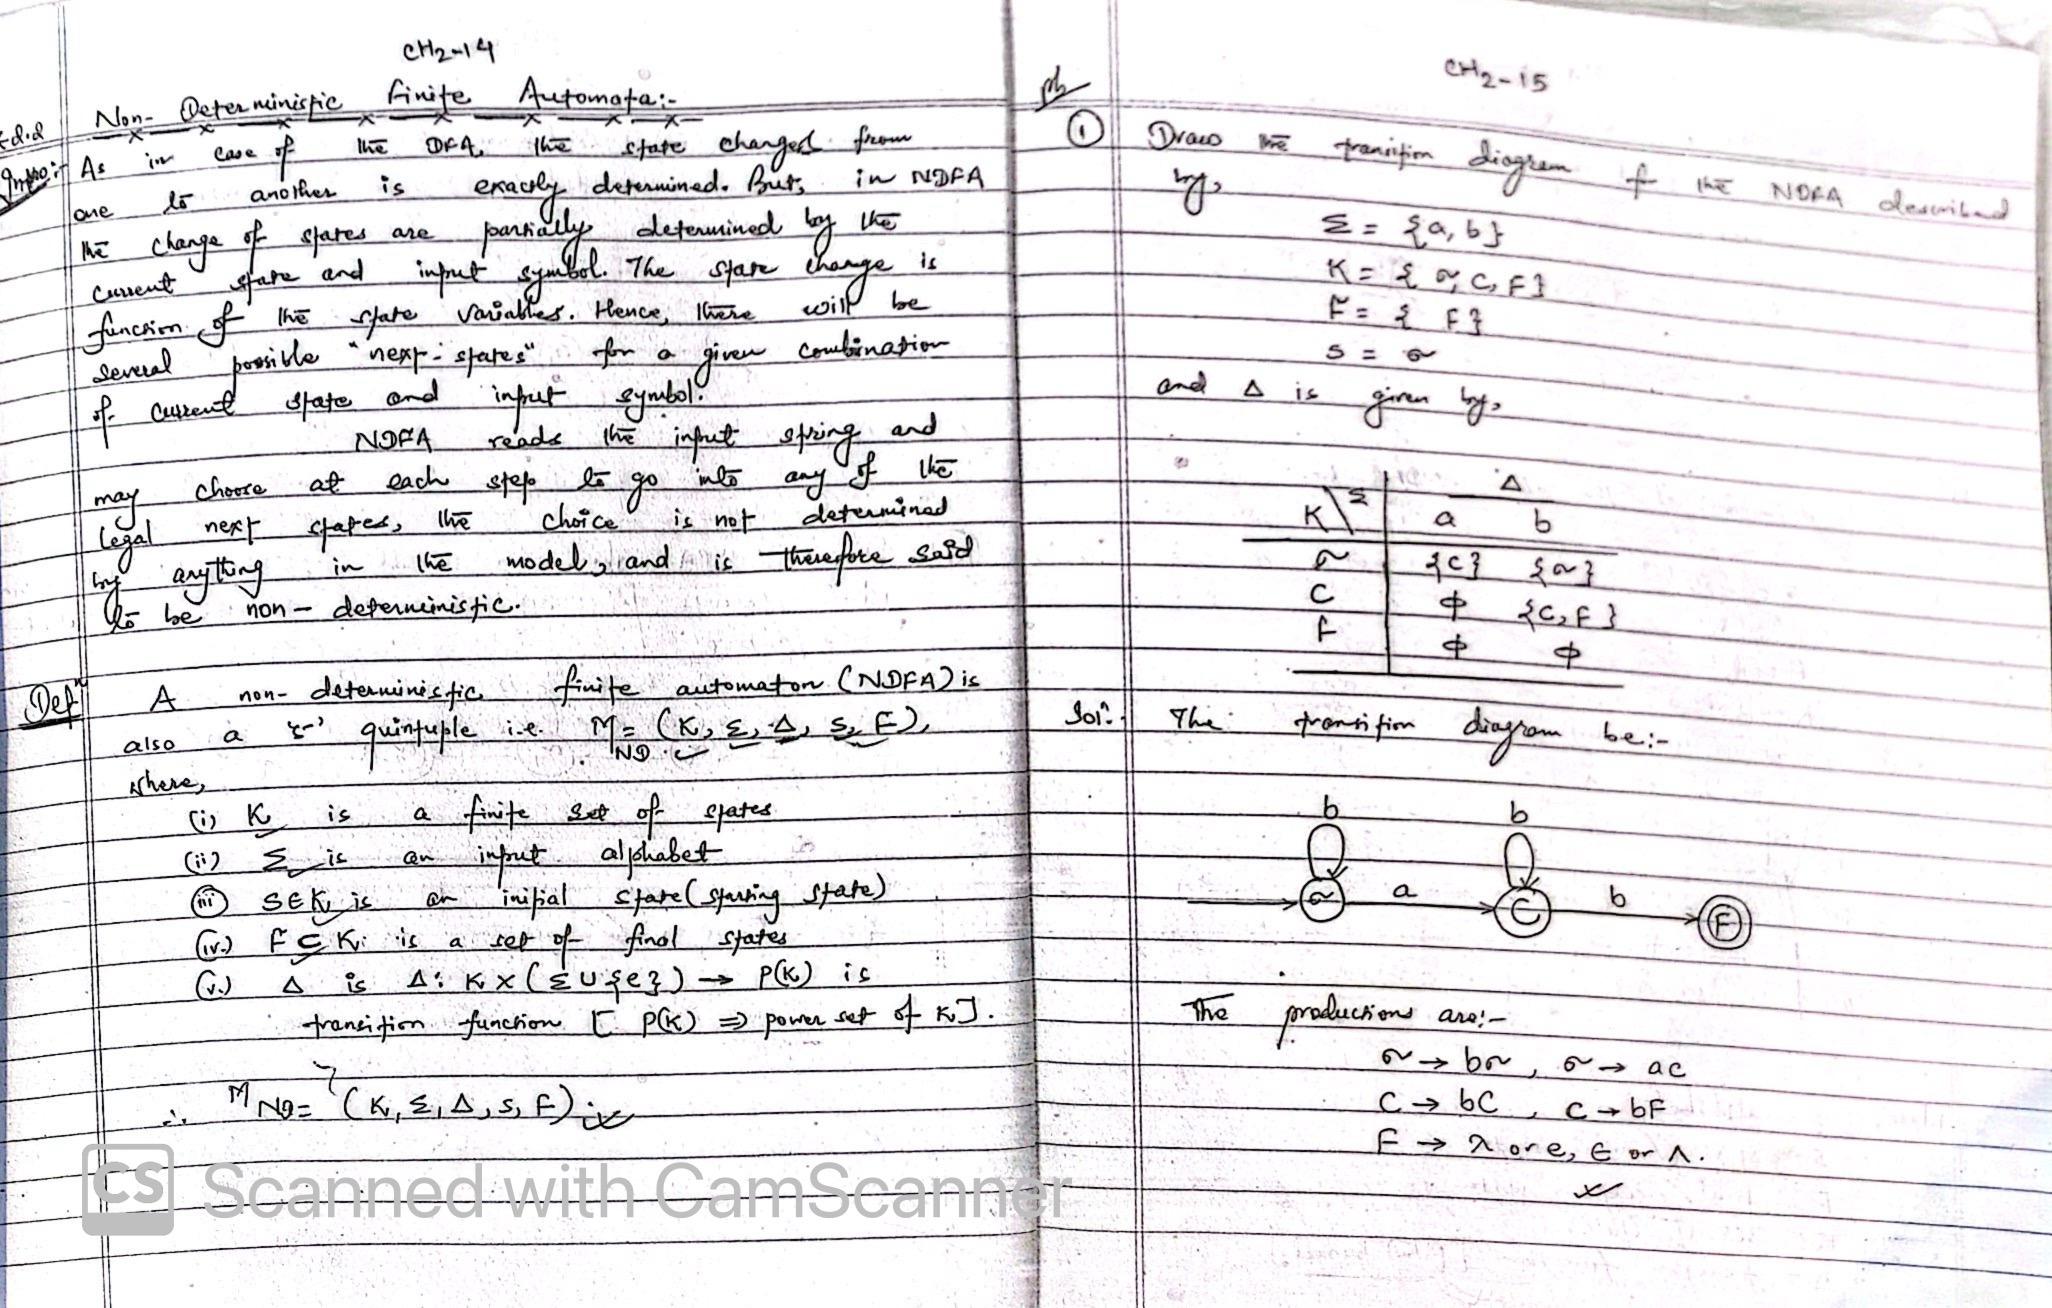 CH2-14
Non-Deterministic Finite Automata:-
Intro:- As in case of the DFA, the state changed from
one to another is exactly determined. But, in NDFA
the change of states are partially determined by the
current state and input symbol. The state change is
function of the state variables. Hence, there will be
several possible "next-states" for a given combination
of current state and input symbol.
NDFA reads the input string and
may choose at each step to go into any of the
legal next states, the choice is not determined
by anything in the model, and is therefore said
to be non-deterministic.
Defⁿ A non-deterministic finite automaton (NDFA) is
also a quintuple i.e. M_ND = (K, Σ, Δ, s, F),
where,
(i) K is a finite set of states
(ii) Σ is an input alphabet
(iii) S∈K is an initial state (starting state)
(iv.) F ⊆ K is a set of final states
(v.) Δ is Δ: K × (Σ ∪ {e}) → P(K) is
transition function [ P(K) ⇒ power set of K].
∴ M_ND = (K, Σ, Δ, s, F)
CS Scanned with CamScanner
CH2-15
① Draw the transition diagram of the NDFA described
by,
Σ = {a, b}
K = {σ, C, F}
F = { F}
S = σ
and Δ is given by,
Δ
K \ Σ a b
σ {C} {σ}
C ϕ {C, F}
F ϕ ϕ
Solⁿ:- The transition diagram be:-
b b
σ a C b F
The productions are:-
σ → bσ, σ → aC
C → bC, C → bF
F → λ or e, ∈ or Λ.